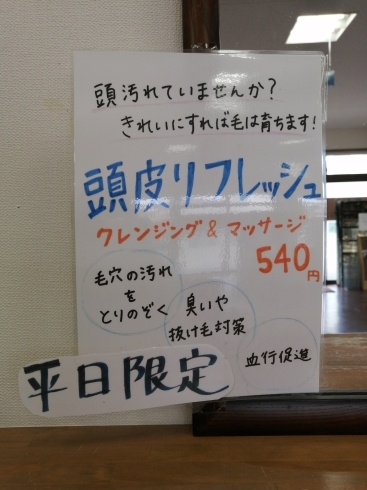 頭汚れていませんか？
きれいにすれば毛は育ちます！
頭皮リフレッシュ
クレンジング＆マッサージ
540円
毛穴の汚れ
を
とりのぞく
臭いや
抜け毛対策
血行促進
平日限定